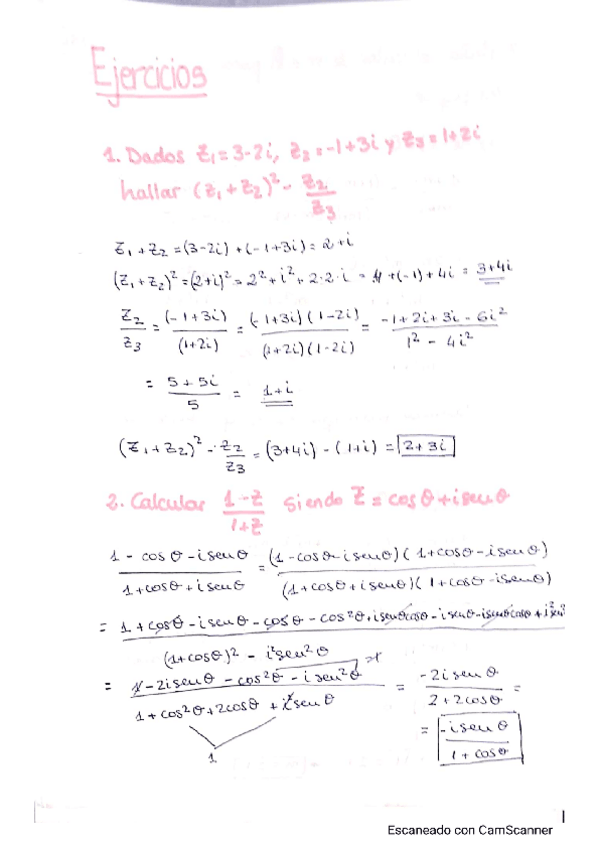 Ejercicios
1. Dados z₁=3-2i, z₂=-1+3i y z₃=1+2i
hallar (z₁+z₂)² - z₂/z₃
z₁+z₂=(3-2i)+(-1+3i)=2+i
(z₁+z₂)²=(2+i)²=2²+i²+2·2·i = 4+(-1)+4i = 3+4i
z₂/z₃ = (-1+3i)/(1+2i) = (-1+3i)(1-2i)/(1+2i)(1-2i) = -1+2i+3i-6i²/1²-4i²
= 5+5i/5 = 1+i
(z₁+z₂)² - z₂/z₃ = (3+4i)-(1+i) = 2+3i
2. Calcular 1-z/1+z siendo z=cosθ+isenθ
1-cosθ-isenθ/1+cosθ+isenθ = (1-cosθ-isenθ)(1+cosθ-isenθ)/(1+cosθ+isenθ)(1+cosθ-isenθ)
= 1+cosθ-isenθ-cosθ-cos²θ+isenθcosθ-isenθ-isenθcosθ+i²sen²/(1+cosθ)²-i²sen²θ
= 1-2isenθ-cos²θ-isen²θ/1+cos²θ+2cosθ+i²senθ = -2isenθ/2+2cosθ =
1
= -isenθ/1+cosθ
Escaneado con CamScanner